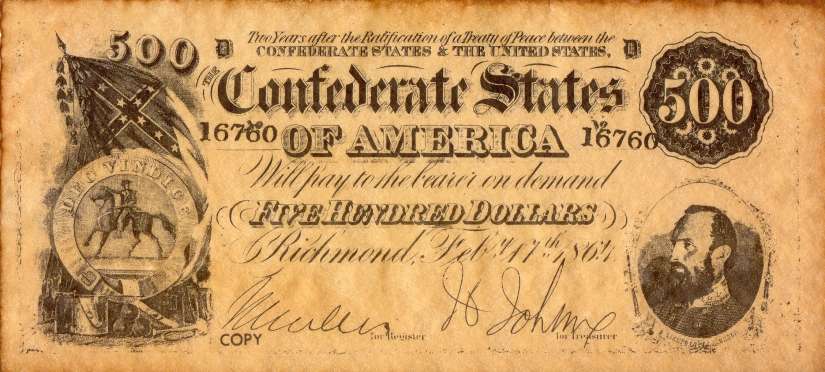 Two Years after the Ratification of a Treaty of Peace between the
CONFEDERATE STATES & THE UNITED STATES,
500
D
D
THE
Confederate States
500
16760
OF AMERICA
16760
Will pay to the bearer on demand
DEO VINDICE
FIVE HUNDRED DOLLARS
Richmond, Feby. 17th, 1864
COPY
for Register
for Treasurer